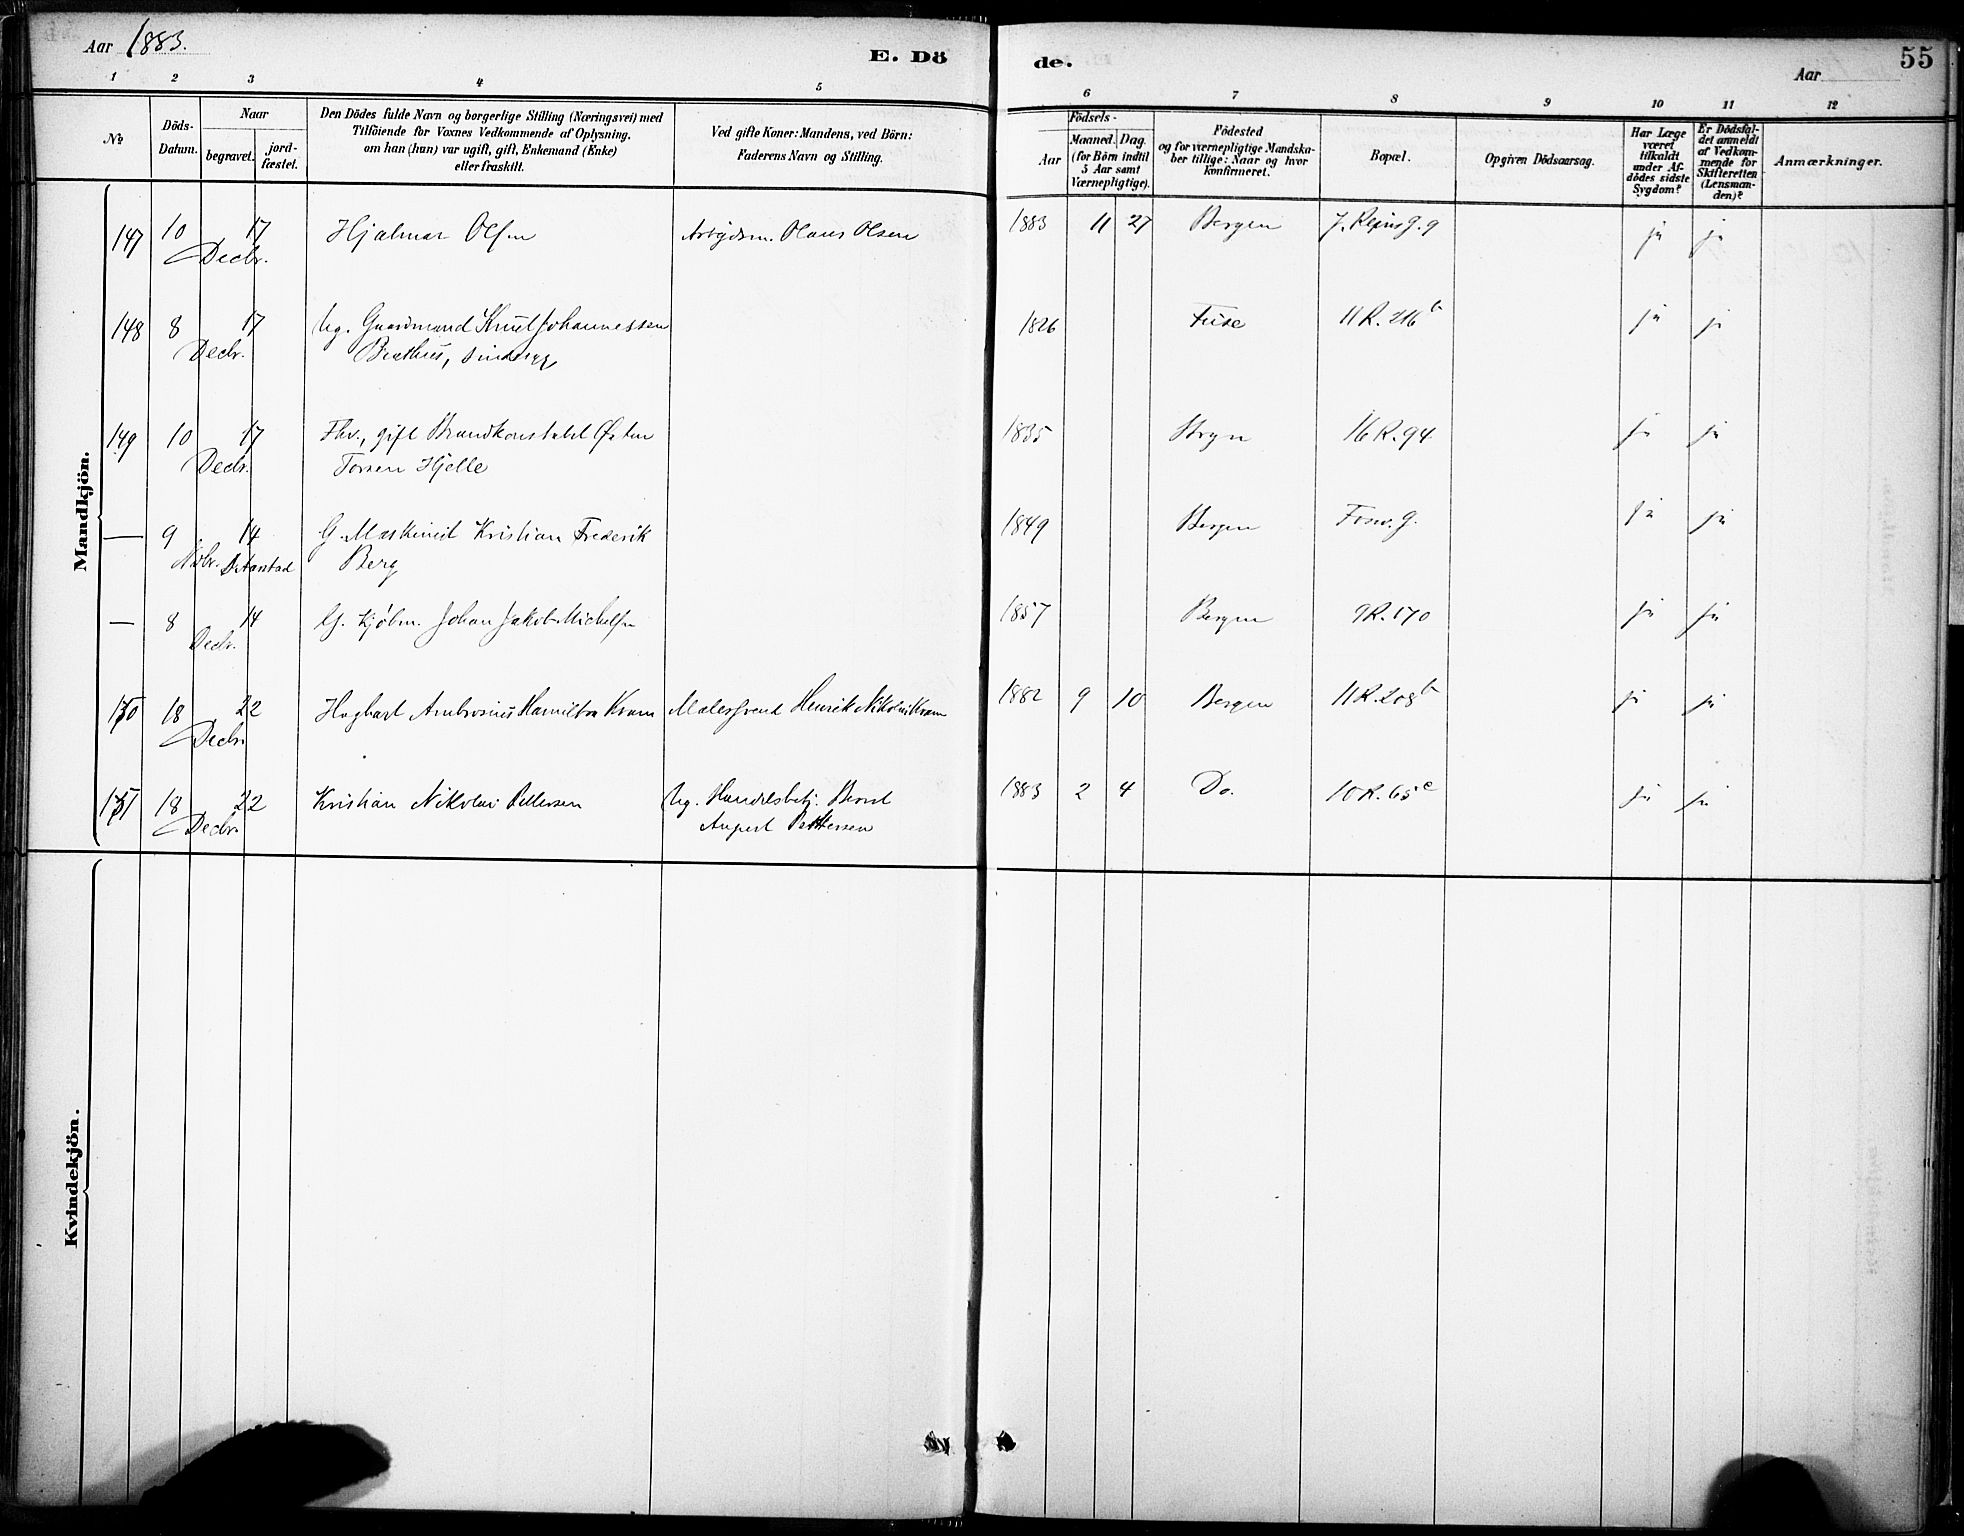 Aar 1883.
E. Dö
de.
Aar
55
1 2 3 4 5 6 7 8 9 10 11 12
No
Döds-Datum.
Naar
begravet.
jord-fæstet.
Den Dödes fulde Navn og borgerlige Stilling (Næringsvei) med
Tilföiende for Voxnes Vedkommende af Oplysning,
om han (hun) var ugift, gift, Enkemand (Enke)
eller fraskilt.
Ved gifte Koner: Mandens, ved Börn:
Faderens Navn og Stilling.
Födsels-
Aar
Maaned. Dag.
(for Börn indtil
5 Aar samt
Værnepligtige).
Födested
og for værnepligtige Mandska-
ber tillige: Naar og hvor
konfirmeret.
Bopæl.
Opgiven Dödsaarsag.
Har Læge
været
tilkaldt
under Af-
dödes sidste
Sygdom?
Er Dödsfal-
det anmeldt
af Vedkom-
mende for
Skifteretten
(Lensman-
den)?
Anmærkninger.
Mandkjön.
147 10 17 Hjalmar Olsen Arbeidsm. Olaus Olsen 1883 11 27 Bergen 9 ja ja
Decbr.
148 8 17 Ug. Gaardmand Knut Johannessen 1826 Fuse 11 R. 216 b ja ja
Decbr.
149 10 17 Fhv., gift Brandkonstabel Østen 1835 Stryn 16 R. 94 ja ja
Decbr. Hjelle
— 9 14 G. Maskinist Kristian Frederik 1849 Bergen ja ja
Nobr. Berg
— 8 14 G. Kjøbm. Johan Jakob Michelsen 1857 Bergen 9 R. 170 ja ja
Decbr.
150 18 22 Hagbart Ambrosius Hamilton Kvam Malersvend Henrik Nikolai Kvam 1882 9 10 Bergen 11 R. 208 b ja ja
Decbr.
151 18 22 Kristian Nikolai Pettersen Ug. Handelsbetj. Bernt 1883 2 4 Do. 10 R. 65 c ja ja
Decbr. August Pettersen
Kvindekjön.